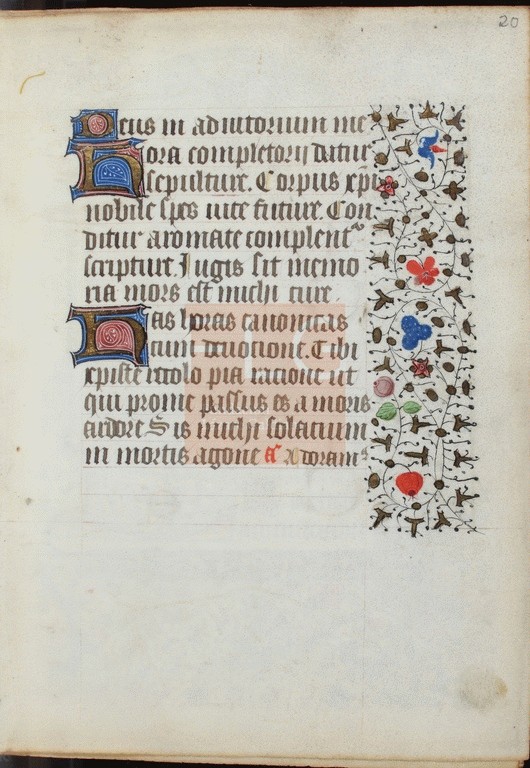 20
Deus in adiutorium me
Hora completorij datur
sepulture. Corpus xpi
nobile spes uite future. Con
ditur aromate complent̄
scripture. Iugis sit memo
ria mors est michi cure.
Has horas canonicas
cum deuotione. Tibi
xpiste recolo pia racione ut
qui pro me passus es amoris
ardore Sis michi solacium
in mortis agone Adoram⁹